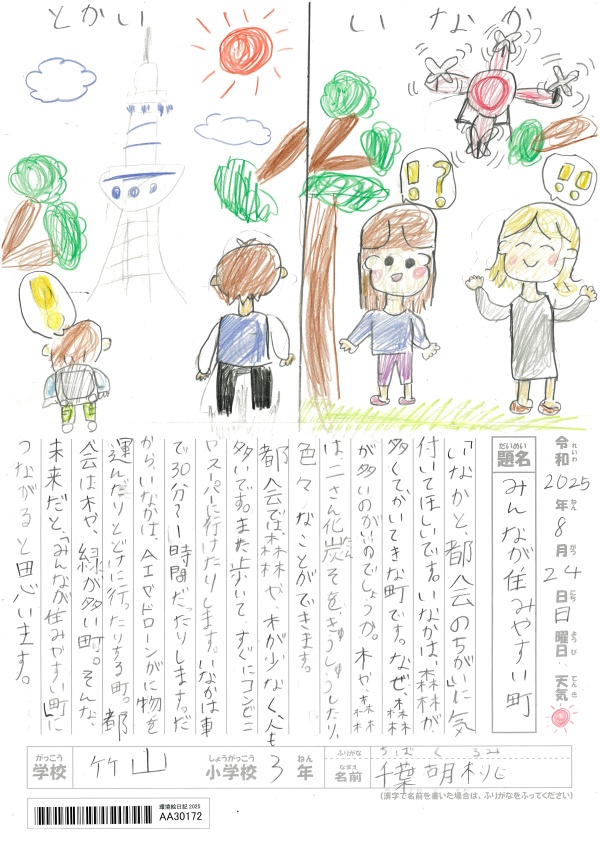 とかい
いなか
!
!?
!!
令和2025年8月24日日曜日 天気
れいわ ねん がつ にち ようび てんき
だいめい
題名
みんなが住みやすい町
「いなかと、都会のちがい」に気
付いてほしいです。いなかは、森林が、
多くてかいてきな町です。なぜ、森林
が多いのがいいのでしょうか。木や、森林
は、二さん化炭そを、きゅうしゅうしたり、
色々なことができます。
都会では、森林や、木が少なく、人も
多いです。また歩いて、すぐにコンビニ
やスーパーに行けたりします。いなかは車
で30分~1時間だったりします。だ
から、いなかは、AIやドローンがに物を
運んだりとどけに行ったりする町。都
会は木や、緑が多い町。そんな、
未来だと、「みんなが住みやすい町」に
つながると思います。
がっこう
学校
竹山
しょうがっこう
小学校
3
ねん
年
ふりがな
ちば くるみ
なまえ
名前
千葉胡桃
(漢字で名前を書いた場合は、ふりがなをふってください)
環境絵日記 2025
AA30172